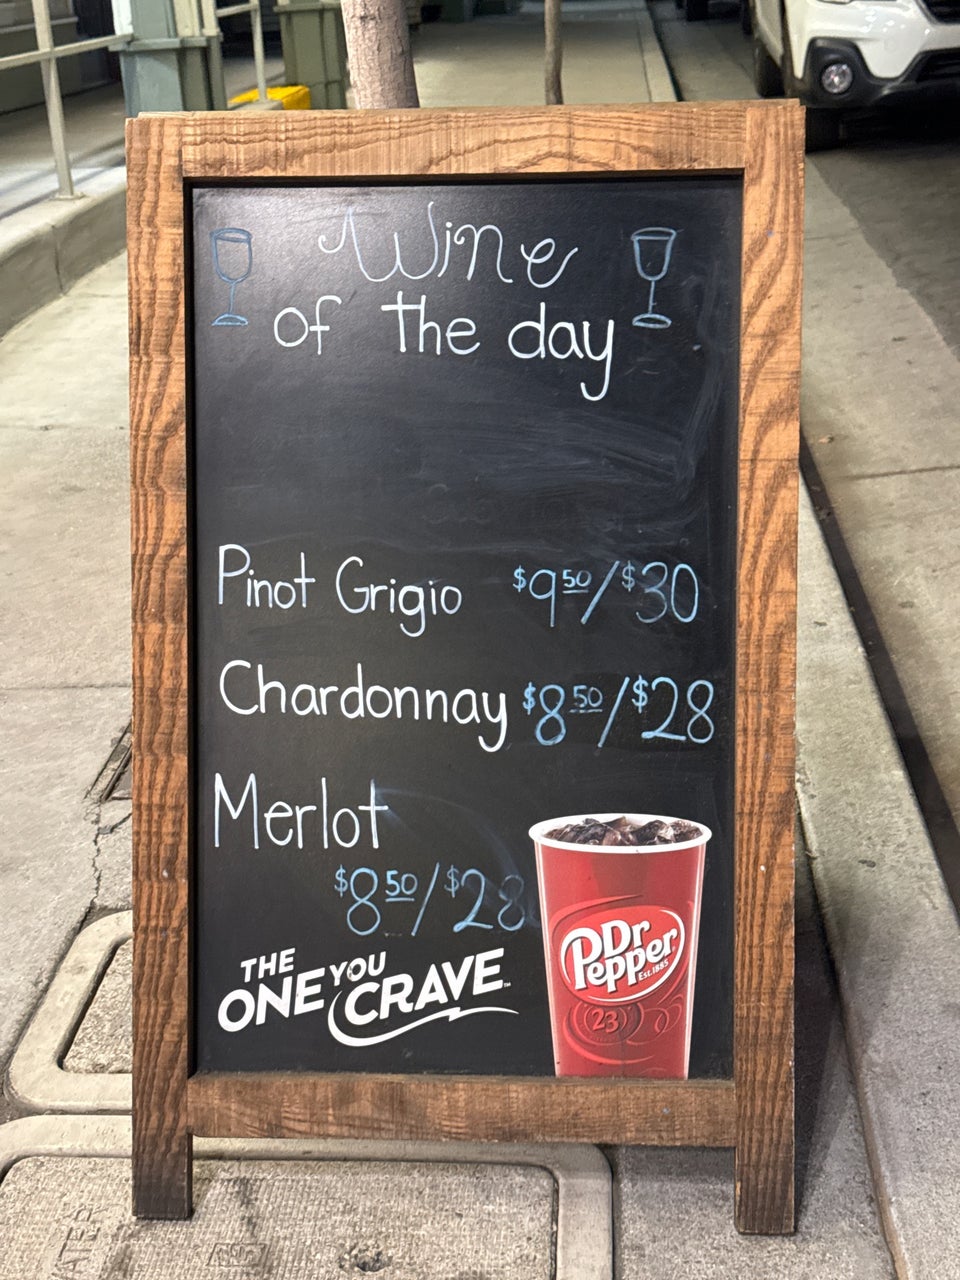 Wine
of the day
Pinot Grigio $9 50/$30
Chardonnay $8 50/$28
Merlot
$8 50/$28
THE
ONE YOU
CRAVE™
Dr
Pepper
EST. 1885
23
WATER